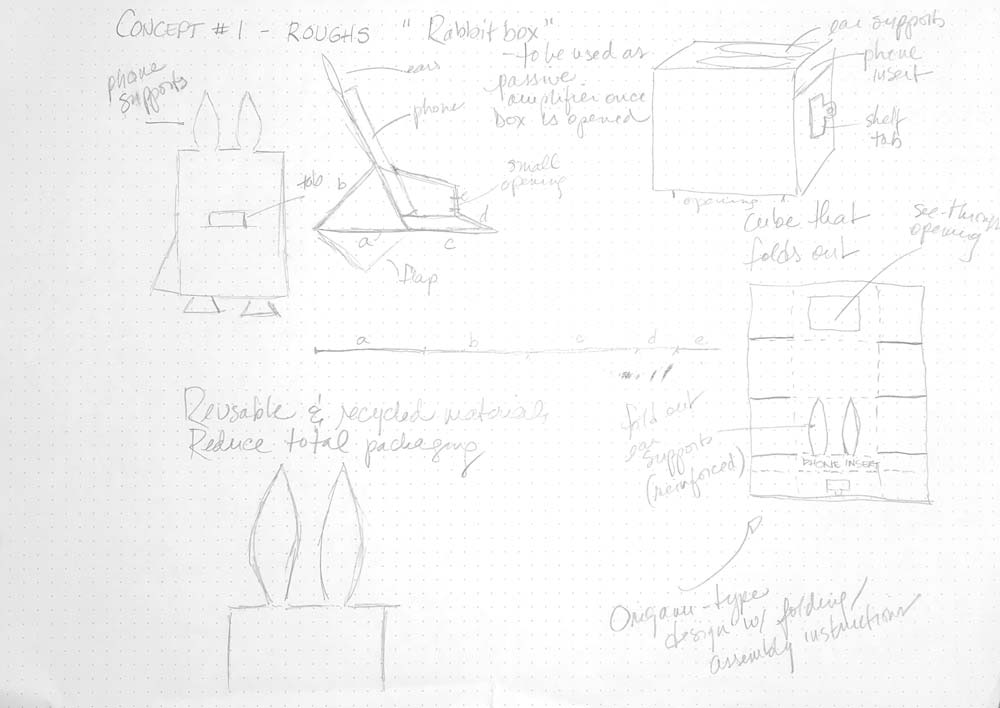 CONCEPT #1 - ROUGHS "Rabbit box"
phone
supports
ears
phone
- to be used as
passive
amplifier once
box is opened
small
opening
tab
b
a
c
d
e
flap
ear supports
phone
insert
shelf
tab
opening
cube that
folds out
see-through
opening
a b c d e
Reusable & recycled materials
Reduce total packaging
fold out
ear
supports
(reinforced)
PHONE INSERT
Origami-type
design w/ folding/
assembly instructions